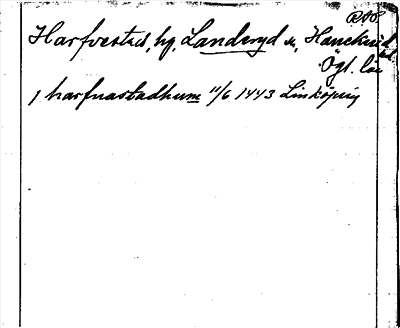 Harfvestad, hg. Landeryd s., Hanekinds
hd.
Ögl. län
j harfnastadhum 11/6 1443 Linköping